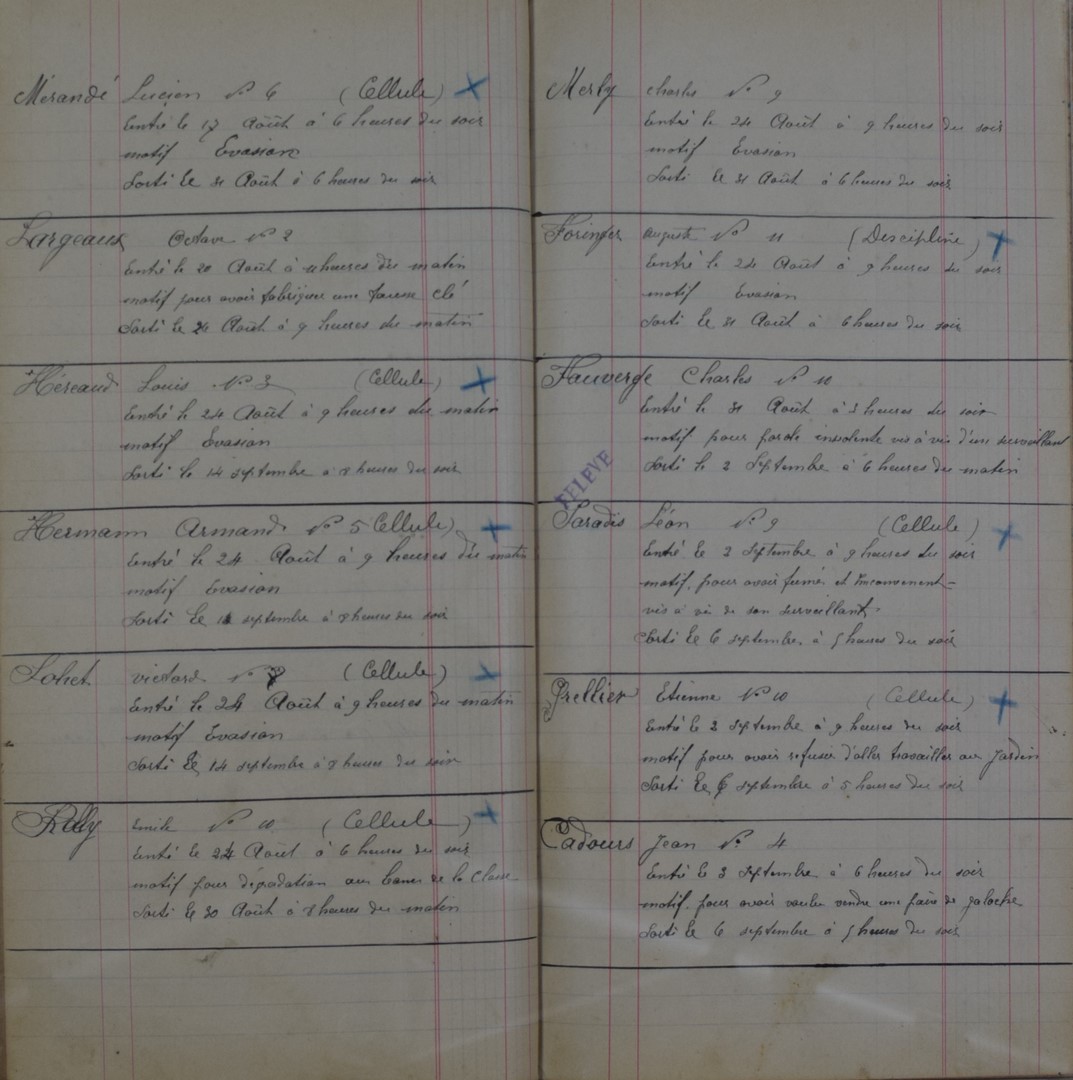 Mérandé Lucien N° 6 (Cellule)
Entré le 17 Août à 6 heures du soir
motif Evasion
Sorti le 31 Août à 6 heures du soir
Largeaux Octave N° 2
Entré le 20 Août à 11 heures du matin
motif pour avoir fabriquer une fausse clé
Sorti le 24 Août à 9 heures du matin
Héreaud Louis N° 3 (Cellule)
Entré le 24 Août à 9 heures du matin
motif Evasion
Sorti le 14 septembre à 8 heures du soir
Hermann Armand N° 5 Cellule)
Entré le 24 Août à 9 heures du matin
motif Evasion
Sorti le septembre à 8 heures du soir
Lohet victord N°
Entré le 24 Août à 9 heures du matin
(Cellule)
motif Evasion
Sorti le 14 septembre à 8 heures du soir
Rolly Emile N° 10 (Cellule)
Entré le 24 Août à 6 heures du soir
motif pour dégradation aux bancs de la Classe
Sorti le 30 Août à 8 heures du matin
Merly charles N° 9
Entré le 24 Août à 9 heures du soir
motif Evasion
Sorti le 31 Août à 6 heures du soir
Foringer Auguste N° 11 (Descipline)
Entré le 24 Août à 9 heures du soir
motif Evasion
Sorti le 31 Août à 6 heures du soir
Fauverge Charles N° 10
Entré le 31 Août à 3 heures du soir
motif pour parole insolente vis à vis d'un surveillant
Sorti le 2 Septembre à 6 heures du matin
Paradis Léon N° 9 (Cellule)
Entré le 2 Septembre à 9 heures du soir
motif. pour avoir fumé et
vis à vis de son surveillant.
Sorti le 6 septembre. à 5 heures du soir
Grellier Etienne N° 10 (Cellule)
Entré le 2 septembre à 9 heures du soir
motif pour avoir refusé d'aller travailler au Jardin
Sorti le 6 septembre à 5 heures du soir
Cadours Jean N° 4
Entré le 3 septembre à 6 heures du soir
motif. pour avoir voulu vendre une paire de galoche
Sorti le 6 septembre à 5 heures du soir